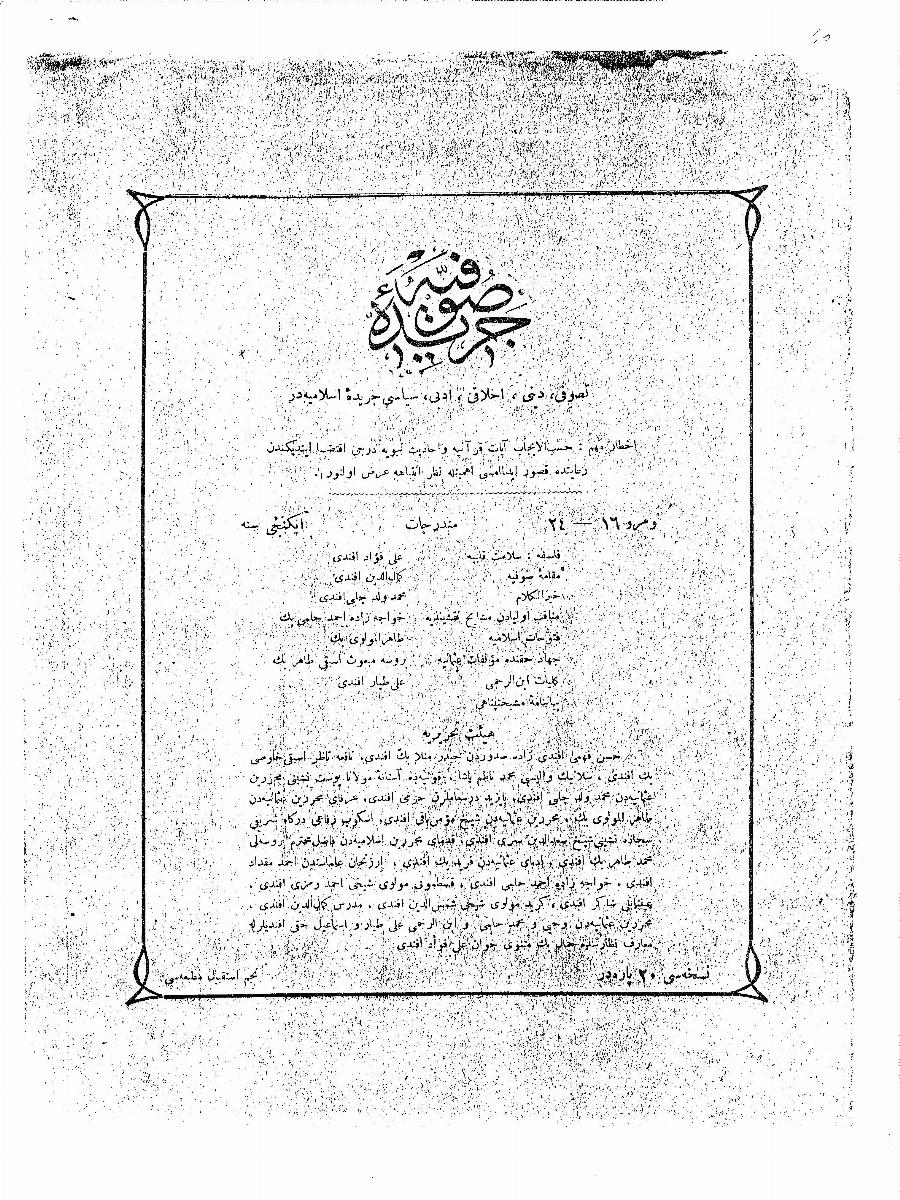 جريدۀ صوفيه
تصوفی، دینی، اخلاقی، ادبی، سیاسی جريدۀ اسلامیه‌در
اخطار مهم : حسب‌الایجاب آیات قرآنیه و احادیث نبویه درجی اقتضا ایتدیکندن
رعایتده قصور ایدلمامسی اهمیتله نظر انتباهه عرض اولنور.
نومرو ١٦ — ٢٤
مندرجات
ایکنجی سنه
فلسفه : سلامت قلبیه
علی فؤاد افندی
مقامۀ صوفیه
کمال‌الدین افندی
خیرالکلام
محمد ولد چلبی افندی
مناقب اولیادن مشایخ نقشبندیه
خواجه زاده احمد حلمی بك
فتوحات اسلامیه
طاهرالمولوی بك
جهاد حقنده مؤلفات عثمانیه
بروسه مبعوث اسبقی طاهر بك
کلیات ابن‌الرحمی
علی طیار افندی
بیاننامۀ مشیختپناهی
هیئت تحریریه
حسن فهمی افندی زاده صدوردن حیدر منلا بك افندی، نافعه ناظر اسبقی خلوصی
بك افندی، سلانیك والیسی محمد ناظم پاشا، قونیه‌ده آستانۀ مولانا پوست نشینی محررین
عثمانیه‌دن محمد ولد چلبی افندی، بایزید درسعاملرندن حزمی افندی، عرفای محررین عثمانیه‌دن
طاهر المولوی بك، محررین عثمانیه‌دن شیخ مؤمن باقی افندی، اسکوب رفاعی درگاه شریفی
سجاده نشینی شیخ سعدالدین سری افندی، قدمای محررین اسلامیه‌دن فاضل محترم بروسه‌لی
محمد طاهر بك افندی، ادبای عثمانیه‌دن فرید بك افندی، ارزنجان علماسندن احمد مقداد
افندی، خواجه زاده احمد حلمی افندی، قسطمونی مولوی شیخی احمد رمزی افندی،
شاکر افندی، کرید مولوی شیخی شمس‌الدین افندی، مدرس کمال‌الدین افندی،
محررین عثمانیه‌دن وحیی و محمد حلمی و ابن الرحمی علی طیار و اسماعیل حقی افندیلرله
معارف نظارتنده بك مثنوی خوان علی فؤاد افندی
نسخه‌سی ٢٠ پاره‌در
نجم استقبال مطبعه‌سی